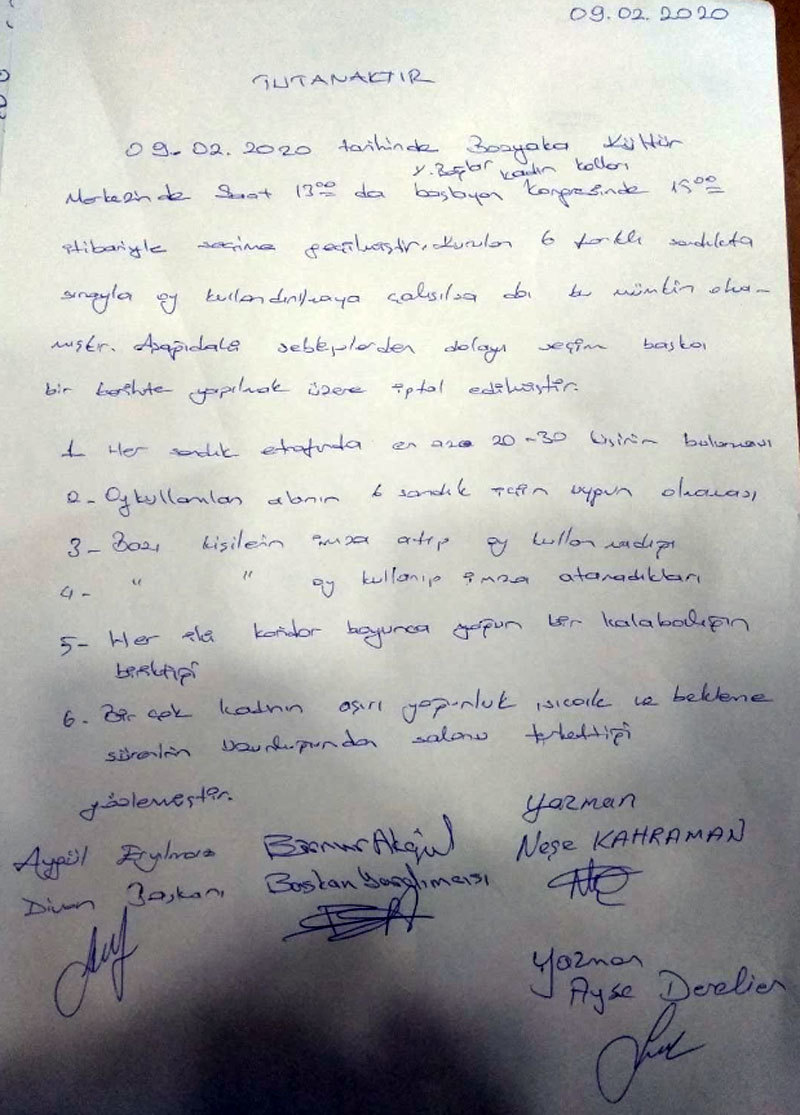 09.02.2020
TUTANAKTIR
09.02.2020 tarihinde Bozyaka Kültür
K. Bağlar kadın kolları
Merkezinde Saat 13⁰⁰ da başlayan kongresinde 15⁰⁰
itibariyle seçime geçilmiştir. Kurulan 6 farklı sandıkta
sırayla oy kullandırılmaya çalışılsa da bu mümkün olma-
mıştır. Aşağıdaki sebeplerden dolayı seçim başka
bir tarihte yapılmak üzere iptal edilmiştir.
1 Her sandık etrafında en aza 20-30 kişinin bulunması
2- Oy kullanılan alanın 6 sandık için uygun olmaması
3- Bazı kişilerin imza atıp oy kullanmadığı
4- " " oy kullanıp imza atamadıkları
5- Her iki koridor boyunca yoğun bir kalabalığın
biriktiği
6. Bir çok kadının aşırı yoğunluk ısıcak ve bekleme
süresinin uzunluğundan salonu terkettiği
gözlemiştir.
Yazman
Aygül Eryılmaz Bernur Akgül Neşe KAHRAMAN
Divan Başkanı Başkan Yardımcısı
Yazman
Ayşe Dereliler